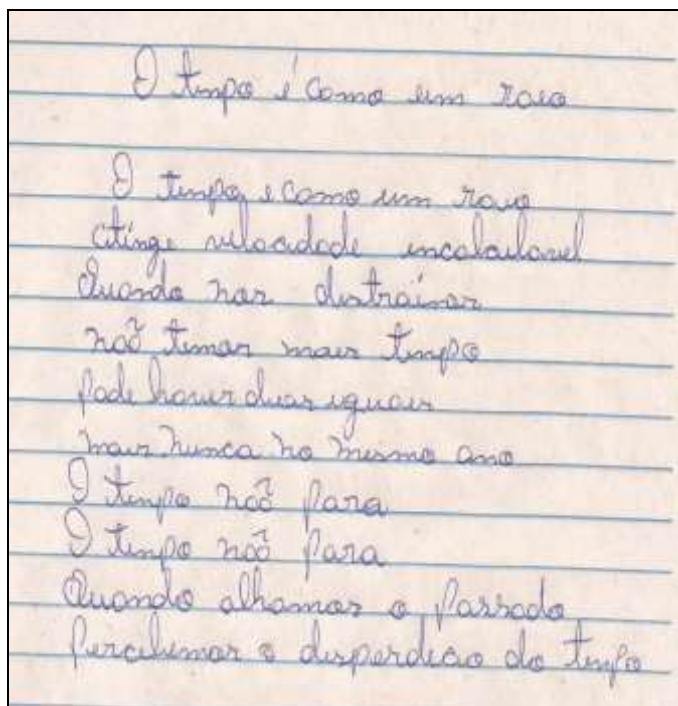 O tempo é como um raio
O tempo, é como um raio
Atinge velocidade incalculavel
Quando nos distraímos
não temos mais tempo
Pode haver duas iguais
mais nunca no mesmo ano
O tempo não para
O tempo não para
Quando olhamos o passado
Percebemos o disperdicio do tempo